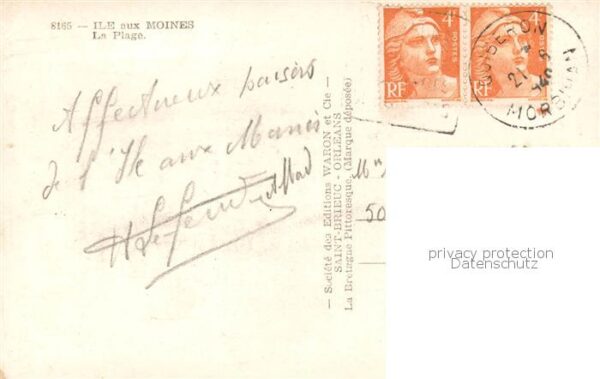 8165 — ILE aux MOINES
La Plage.
Affectueux baisers
de l'Ile aux Moines
— Société des Editions WARON et Cie —
SAINT-BRIEUC - ORLÉANS
La Bretagne Pittoresque. (Marque déposée)
4F
POSTES
RF
4F
POSTES
RF
QUIBERON
21-8
MORBIHAN
M
50
privacy protection
Datenschutz